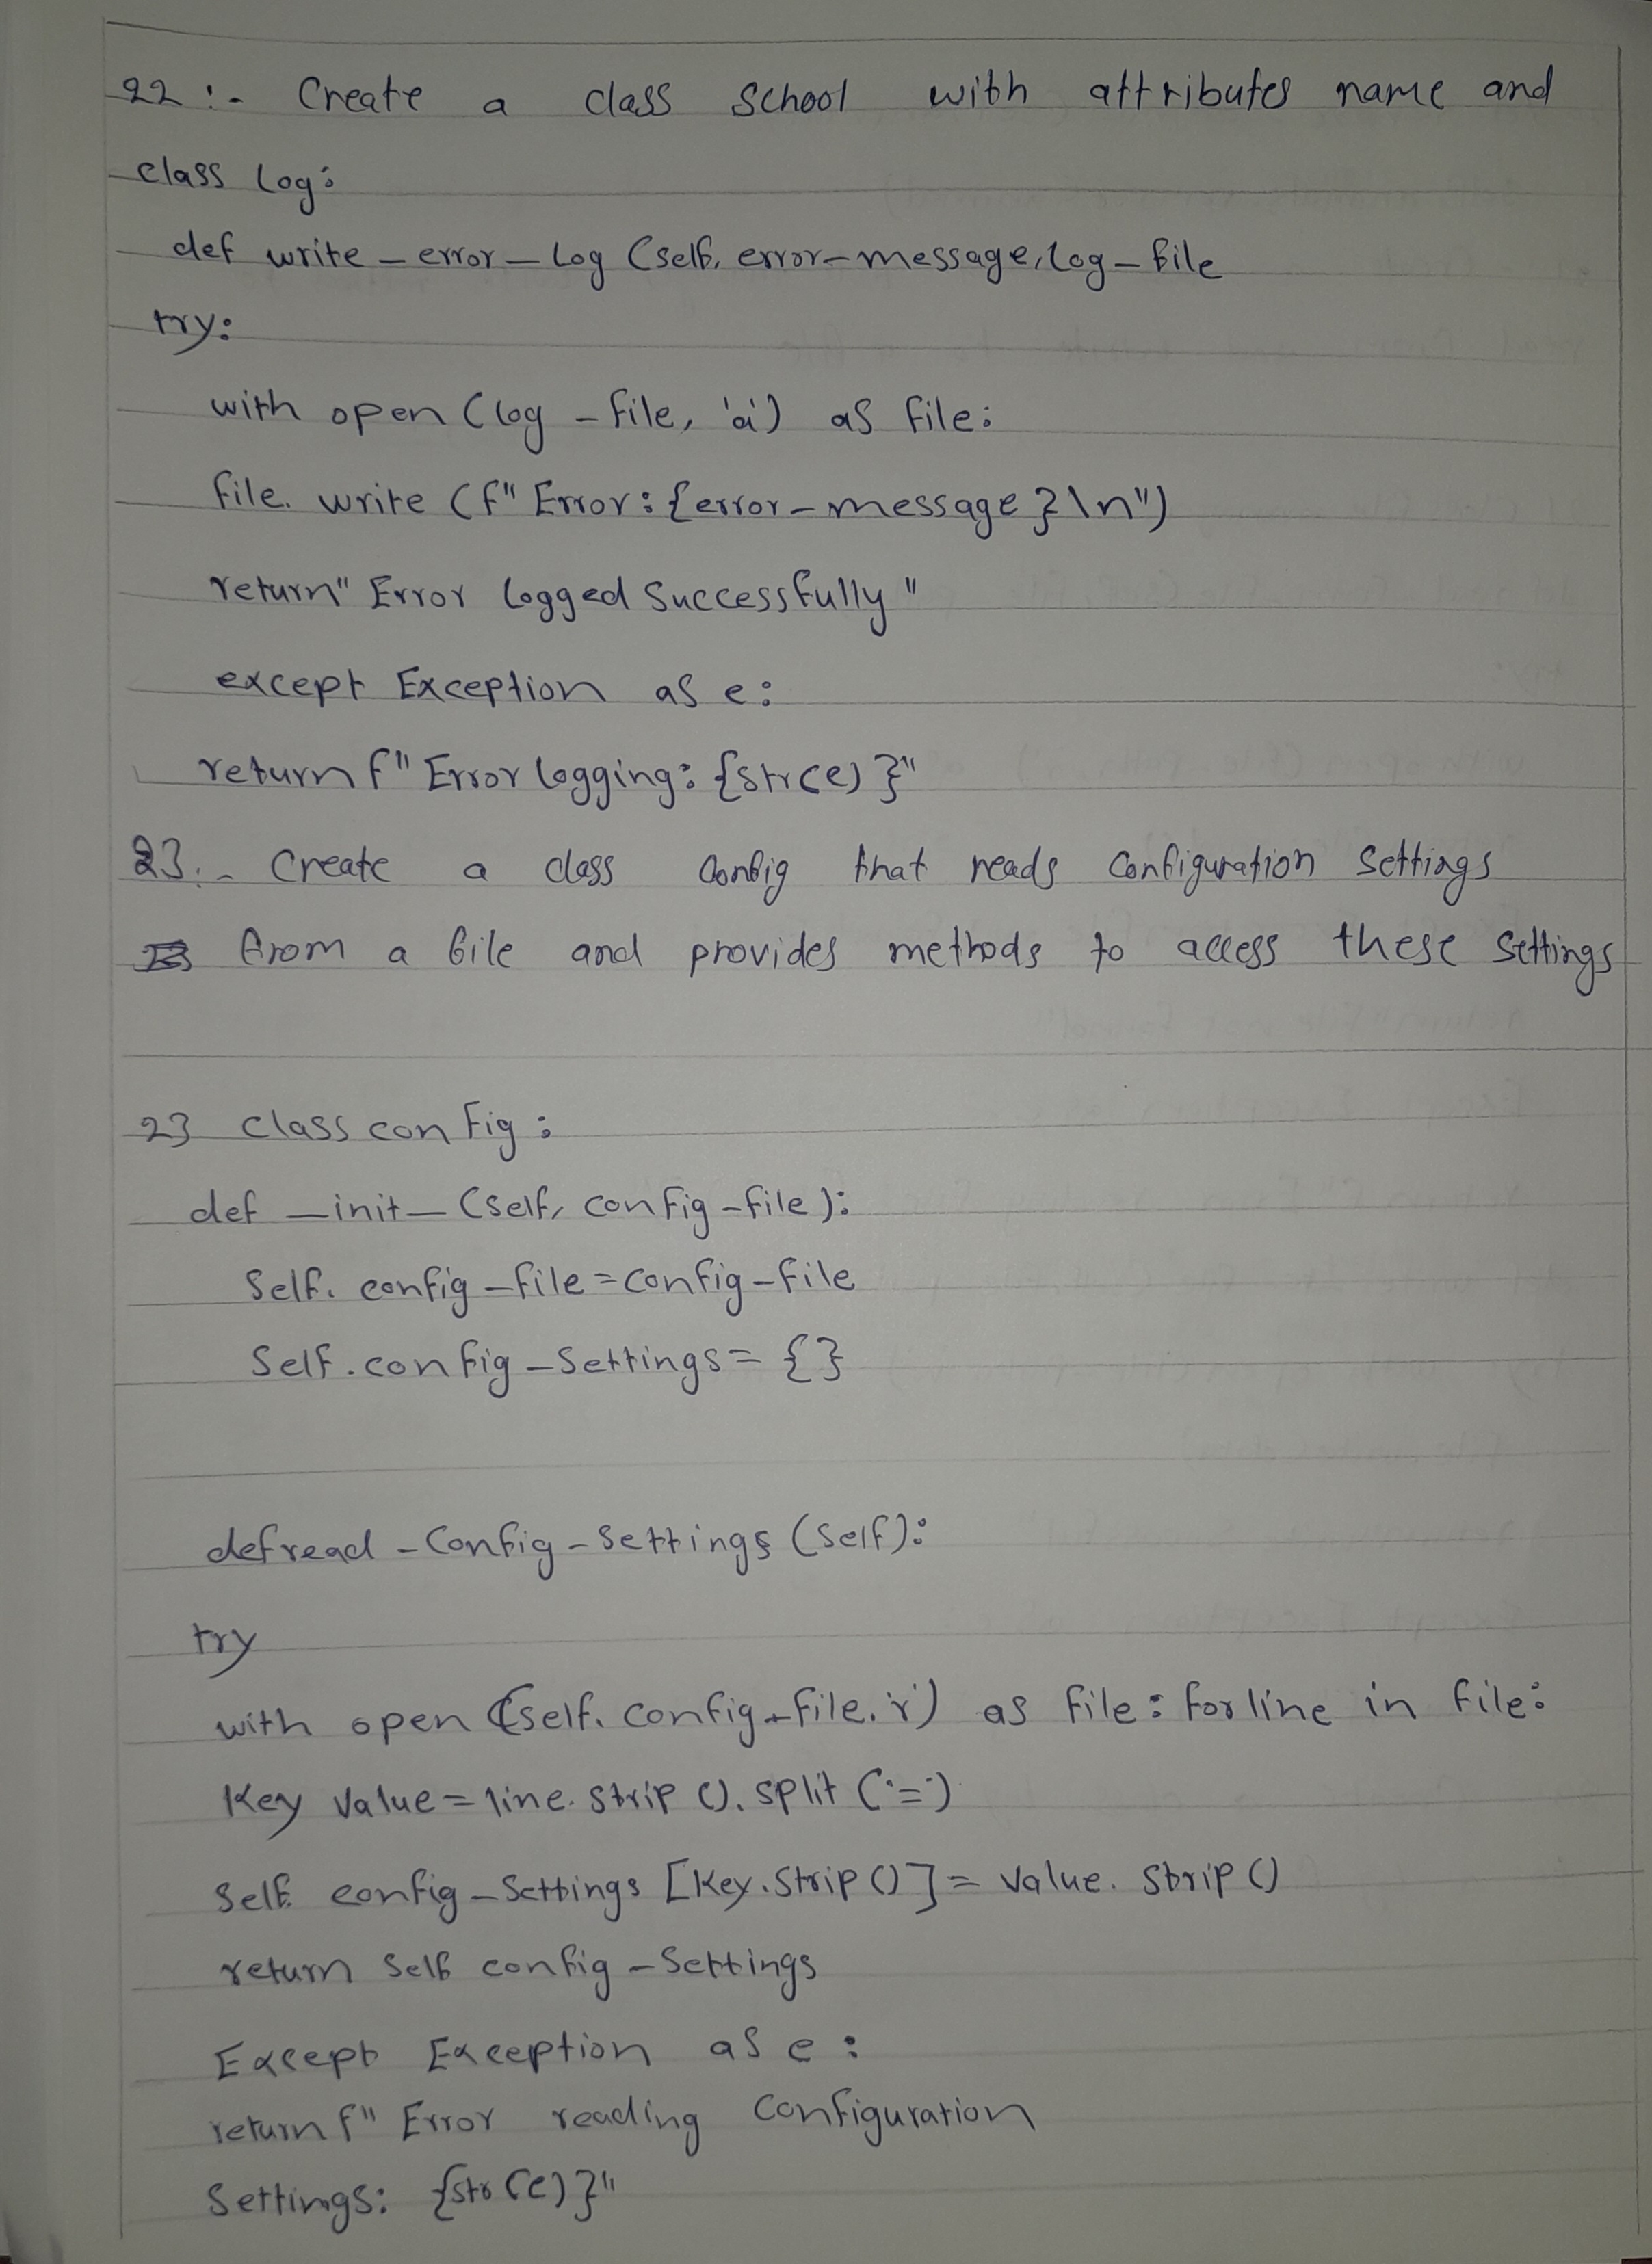 22 :- Create a class School with attributes name and
class Log:
def write_error_log (self, error_message, log_file
try:
with open (log_file, 'a') as file:
file. write (f" Error: {error_message }\n")
return" Error logged Successfully "
except Exception as e:
return f" Error logging: {str(e) }"
23.- Create a class Config that reads Configuration Settings
from a file and provides methods to access these Settings
23 class config:
def _init_ (self, config_file ):
Self. config_file = config_file
Self.config_Settings = { }
def read_Config_Settings (Self):
try
with open (self. config_file. 'r') as file: for line in file:
Key Value = line. Strip (). split ('=')
Self. config_Settings [Key.Strip ()] = Value. Strip ()
return Self config_Settings
Except Exception as e :
return f" Error reading Configuration
Settings: {str (e) }"